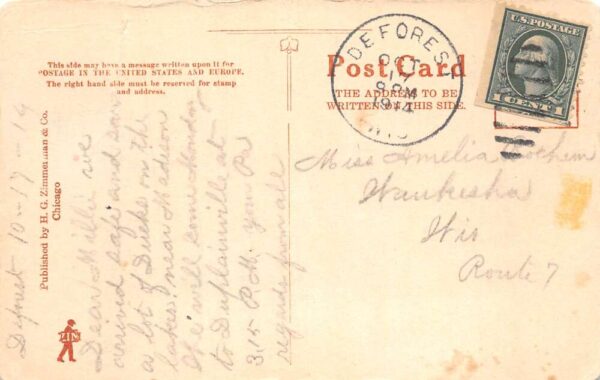 This side may have a message written upon it for
POSTAGE IN THE UNITED STATES AND EUROPE.
The right hand side must be reserved for stamp
and address.
Post Card
THE ADDRESS TO BE
WRITTEN ON THIS SIDE.
DE FOREST
OCT
17
8 PM
1914
WIS
U.S. POSTAGE
1 CENT 1
Miss Amelia
Waukesha
Wis
Route 7
Published by H. G. Zimmerman & Co.
Chicago
Deforest 10-17-14
Dear Millie we
arrived safe and saw
a lot of Ducks on the
lakes near Madison
We will come Monday
to Duplainville at
3.15 P.M. your Pa
regards from all